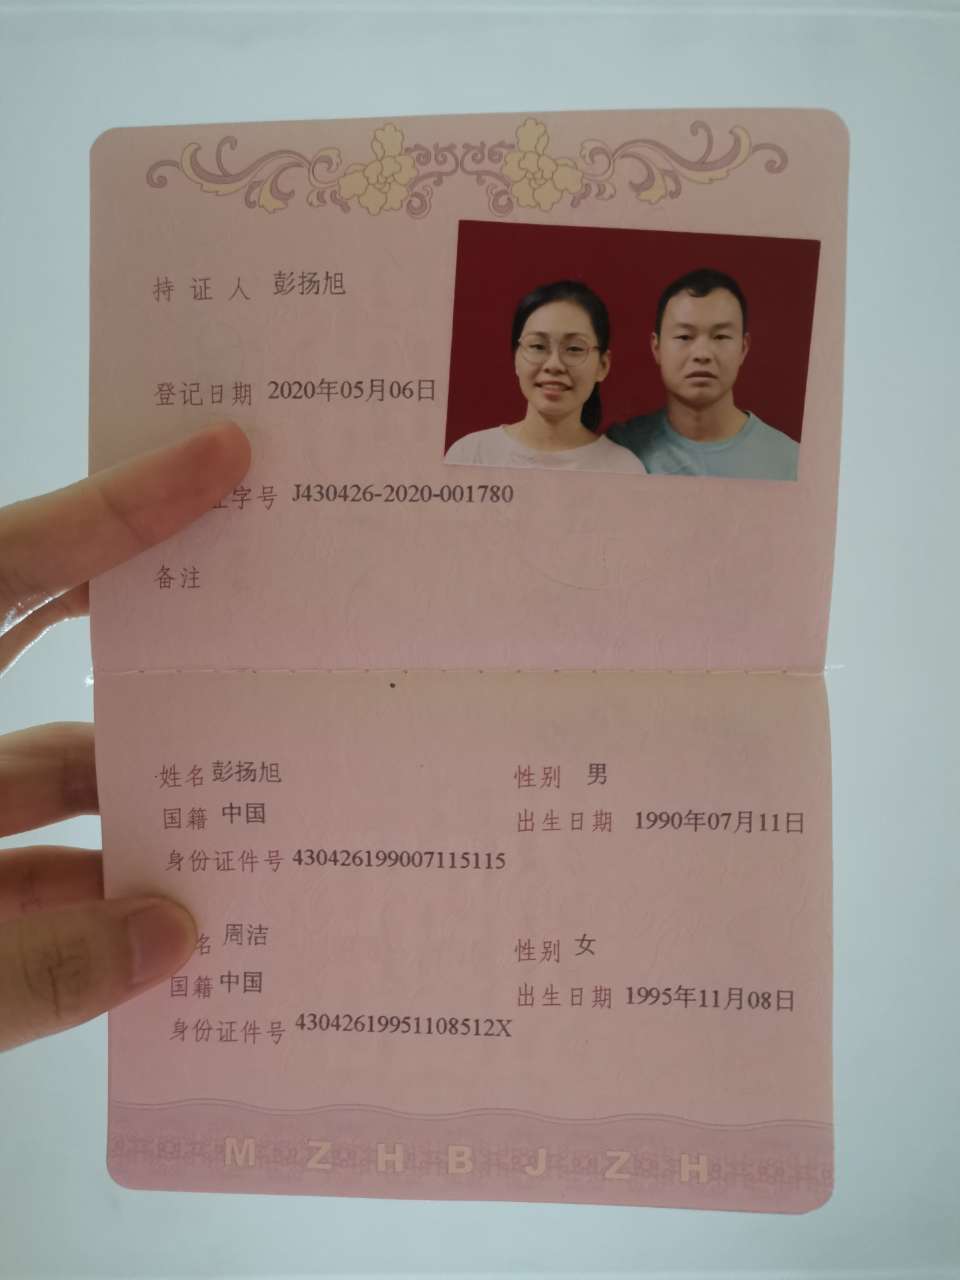 持证人 彭扬旭
登记日期 2020年05月06日
证字号 J430426-2020-001780
备注
姓名 彭扬旭 性别 男
国籍 中国 出生日期 1990年07月11日
身份证件号 430426199007115115
名 周洁 性别 女
国籍 中国 出生日期 1995年11月08日
身份证件号 43042619951108512X
MZHBJZH